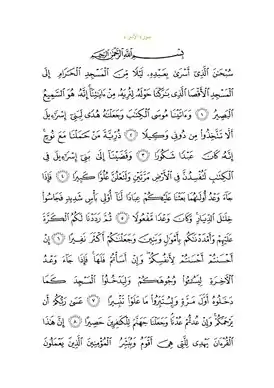 سورة الإسراء
بِسْمِ اللَّهِ الرَّحْمَٰنِ الرَّحِيمِ
سُبْحَٰنَ الَّذِىٓ أَسْرَىٰ بِعَبْدِهِۦ لَيْلًا مِّنَ الْمَسْجِدِ الْحَرَامِ إِلَى
الْمَسْجِدِ الْأَقْصَا الَّذِى بَٰرَكْنَا حَوْلَهُۥ لِنُرِيَهُۥ مِنْ ءَايَٰتِنَآ إِنَّهُۥ هُوَ السَّمِيعُ
الْبَصِيرُ ١ وَءَاتَيْنَا مُوسَى الْكِتَٰبَ وَجَعَلْنَٰهُ هُدًى لِّبَنِىٓ إِسْرَٰٓءِيلَ
أَلَّا تَتَّخِذُوا۟ مِن دُونِى وَكِيلًا ٢ ذُرِّيَّةَ مَنْ حَمَلْنَا مَعَ نُوحٍ
إِنَّهُۥ كَانَ عَبْدًا شَكُورًا ٣ وَقَضَيْنَآ إِلَىٰ بَنِىٓ إِسْرَٰٓءِيلَ فِى
الْكِتَٰبِ لَتُفْسِدُنَّ فِى الْأَرْضِ مَرَّتَيْنِ وَلَتَعْلُنَّ عُلُوًّا كَبِيرًا ٤ فَإِذَا
جَآءَ وَعْدُ أُولَىٰهُمَا بَعَثْنَا عَلَيْكُمْ عِبَادًا لَّنَآ أُو۟لِى بَأْسٍ شَدِيدٍ فَجَاسُوا۟
خِلَٰلَ الدِّيَارِ وَكَانَ وَعْدًا مَّفْعُولًا ٥ ثُمَّ رَدَدْنَا لَكُمُ الْكَرَّةَ
عَلَيْهِمْ وَأَمْدَدْنَٰكُم بِأَمْوَٰلٍ وَبَنِينَ وَجَعَلْنَٰكُمْ أَكْثَرَ نَفِيرًا ٦ إِنْ
أَحْسَنتُمْ أَحْسَنتُمْ لِأَنفُسِكُمْ وَإِنْ أَسَأْتُمْ فَلَهَا فَإِذَا جَآءَ وَعْدُ
الْءَاخِرَةِ لِيَسُۥٓـُٔوا۟ وُجُوهَكُمْ وَلِيَدْخُلُوا۟ الْمَسْجِدَ كَمَا
دَخَلُوهُ أَوَّلَ مَرَّةٍ وَلِيُتَبِّرُوا۟ مَا عَلَوْا۟ تَتْبِيرًا ٧ عَسَىٰ رَبُّكُمْ أَن
يَرْحَمَكُمْ وَإِنْ عُدتُّمْ عُدْنَا وَجَعَلْنَا جَهَنَّمَ لِلْكَٰفِرِينَ حَصِيرًا ٨ إِنَّ هَٰذَا
الْقُرْءَانَ يَهْدِى لِلَّتِى هِىَ أَقْوَمُ وَيُبَشِّرُ الْمُؤْمِنِينَ الَّذِينَ يَعْمَلُونَ